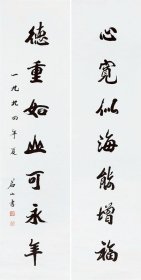 心寬似海能增福
德重如山可永年
一九九四年夏
若山書